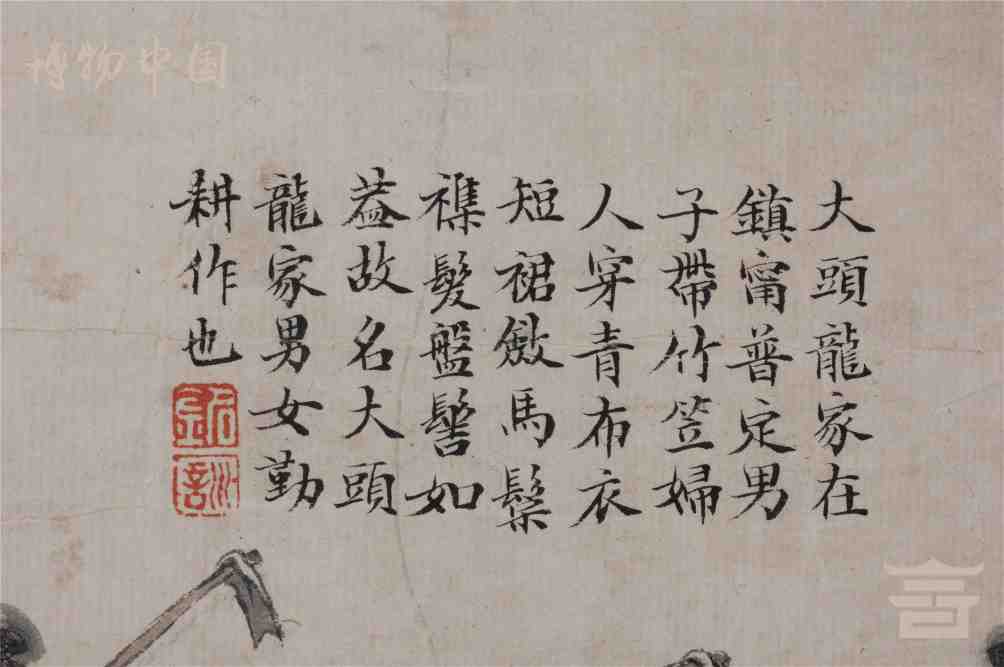 大頭龍家在
鎮甯普定男
子帶竹笠婦
人穿青布衣
短裙斂馬鬃
襍髮盤髻如
葢故名大頭
龍家男女勤
耕作也
博物中国